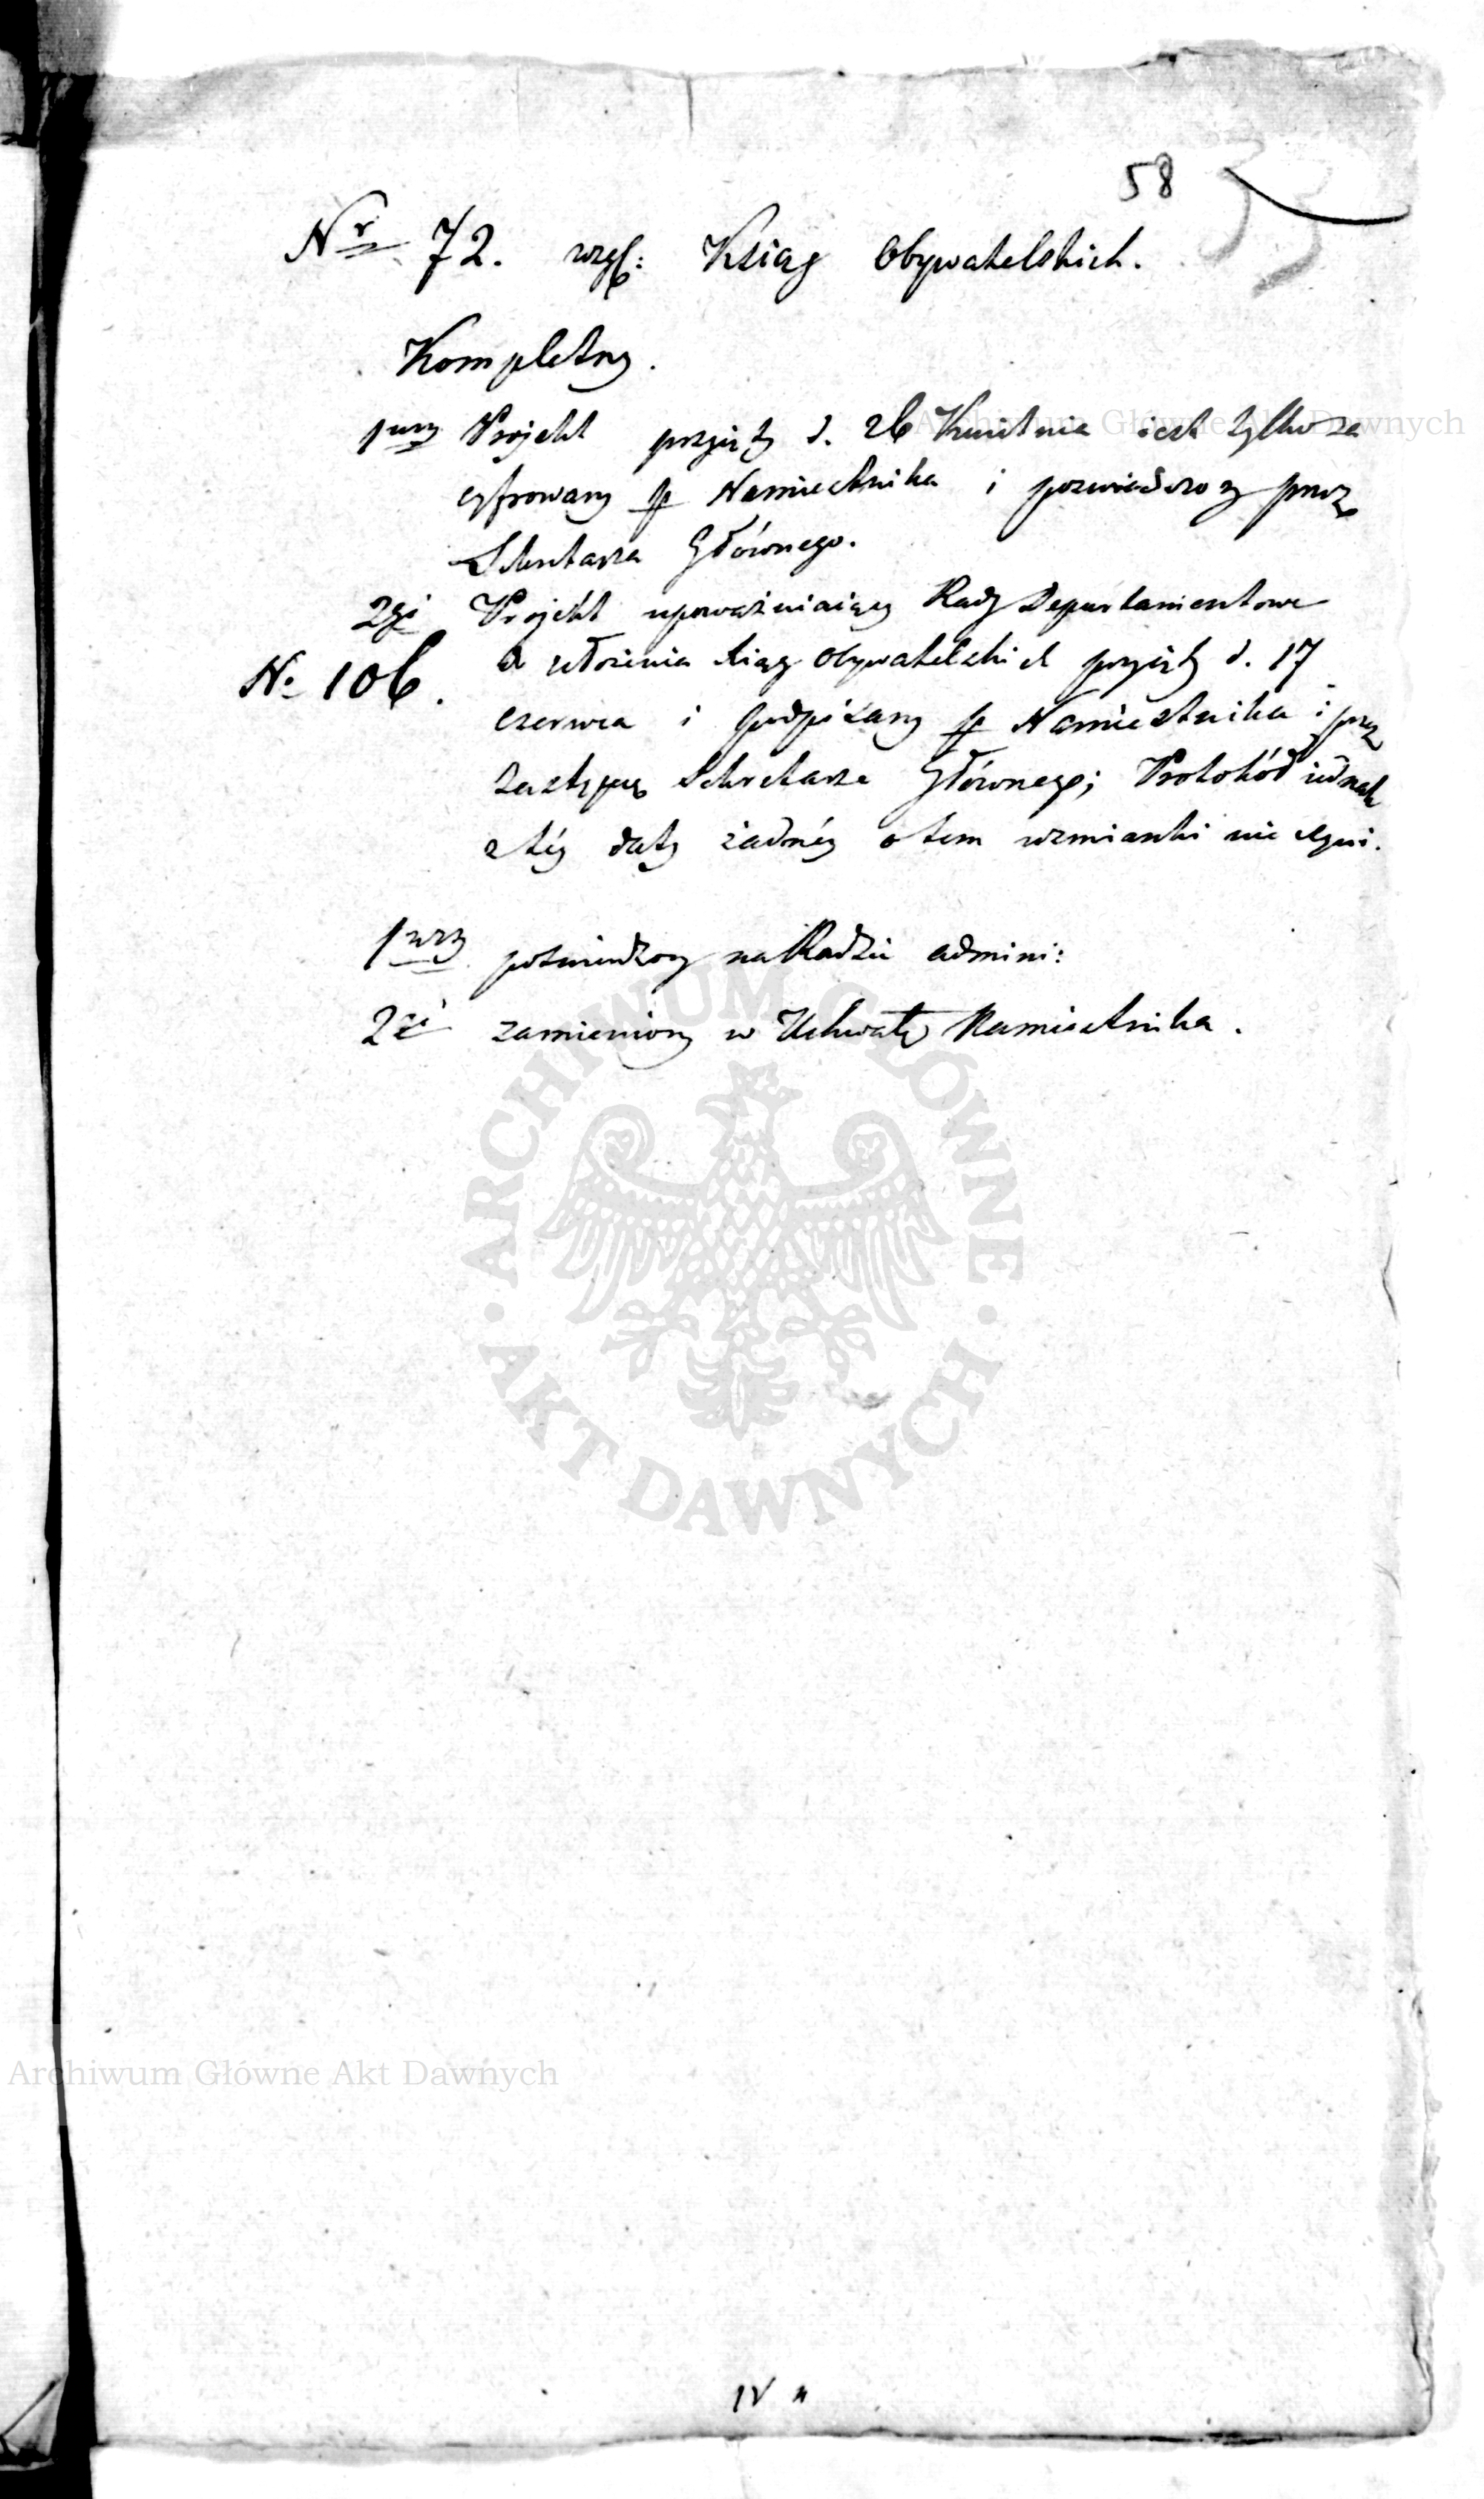 58
Nr 72. wzgl: Ksiąg Obywatelskich.
Kompletny.
1wszy Projekt przyięty d. 26 Kwietnia iest tylko za
cyfrowany p Namiestnika i poświadczony przez
Sekretarza Głównego.
2gi Projekt upoważniaiący Rady Departamentowe
N. 106. do ułożenia ksiąg obywatelskich przyięty d. 17
czerwca i podpisany p Namiestnika i przez
zastępcę Sekretarza Głównego; Protokół iednak
z téy daty żadnéy o tem wzmianki nie czyni.
1wszy potwierdzony na Radzie admini:
2gi zamieniony w Uchwałę Namiestnika.
IV
Archiwum Główne Akt Dawnych
ARCHIWUM GŁÓWNE · AKT DAWNYCH ·
Archiwum Główne Akt Dawnych